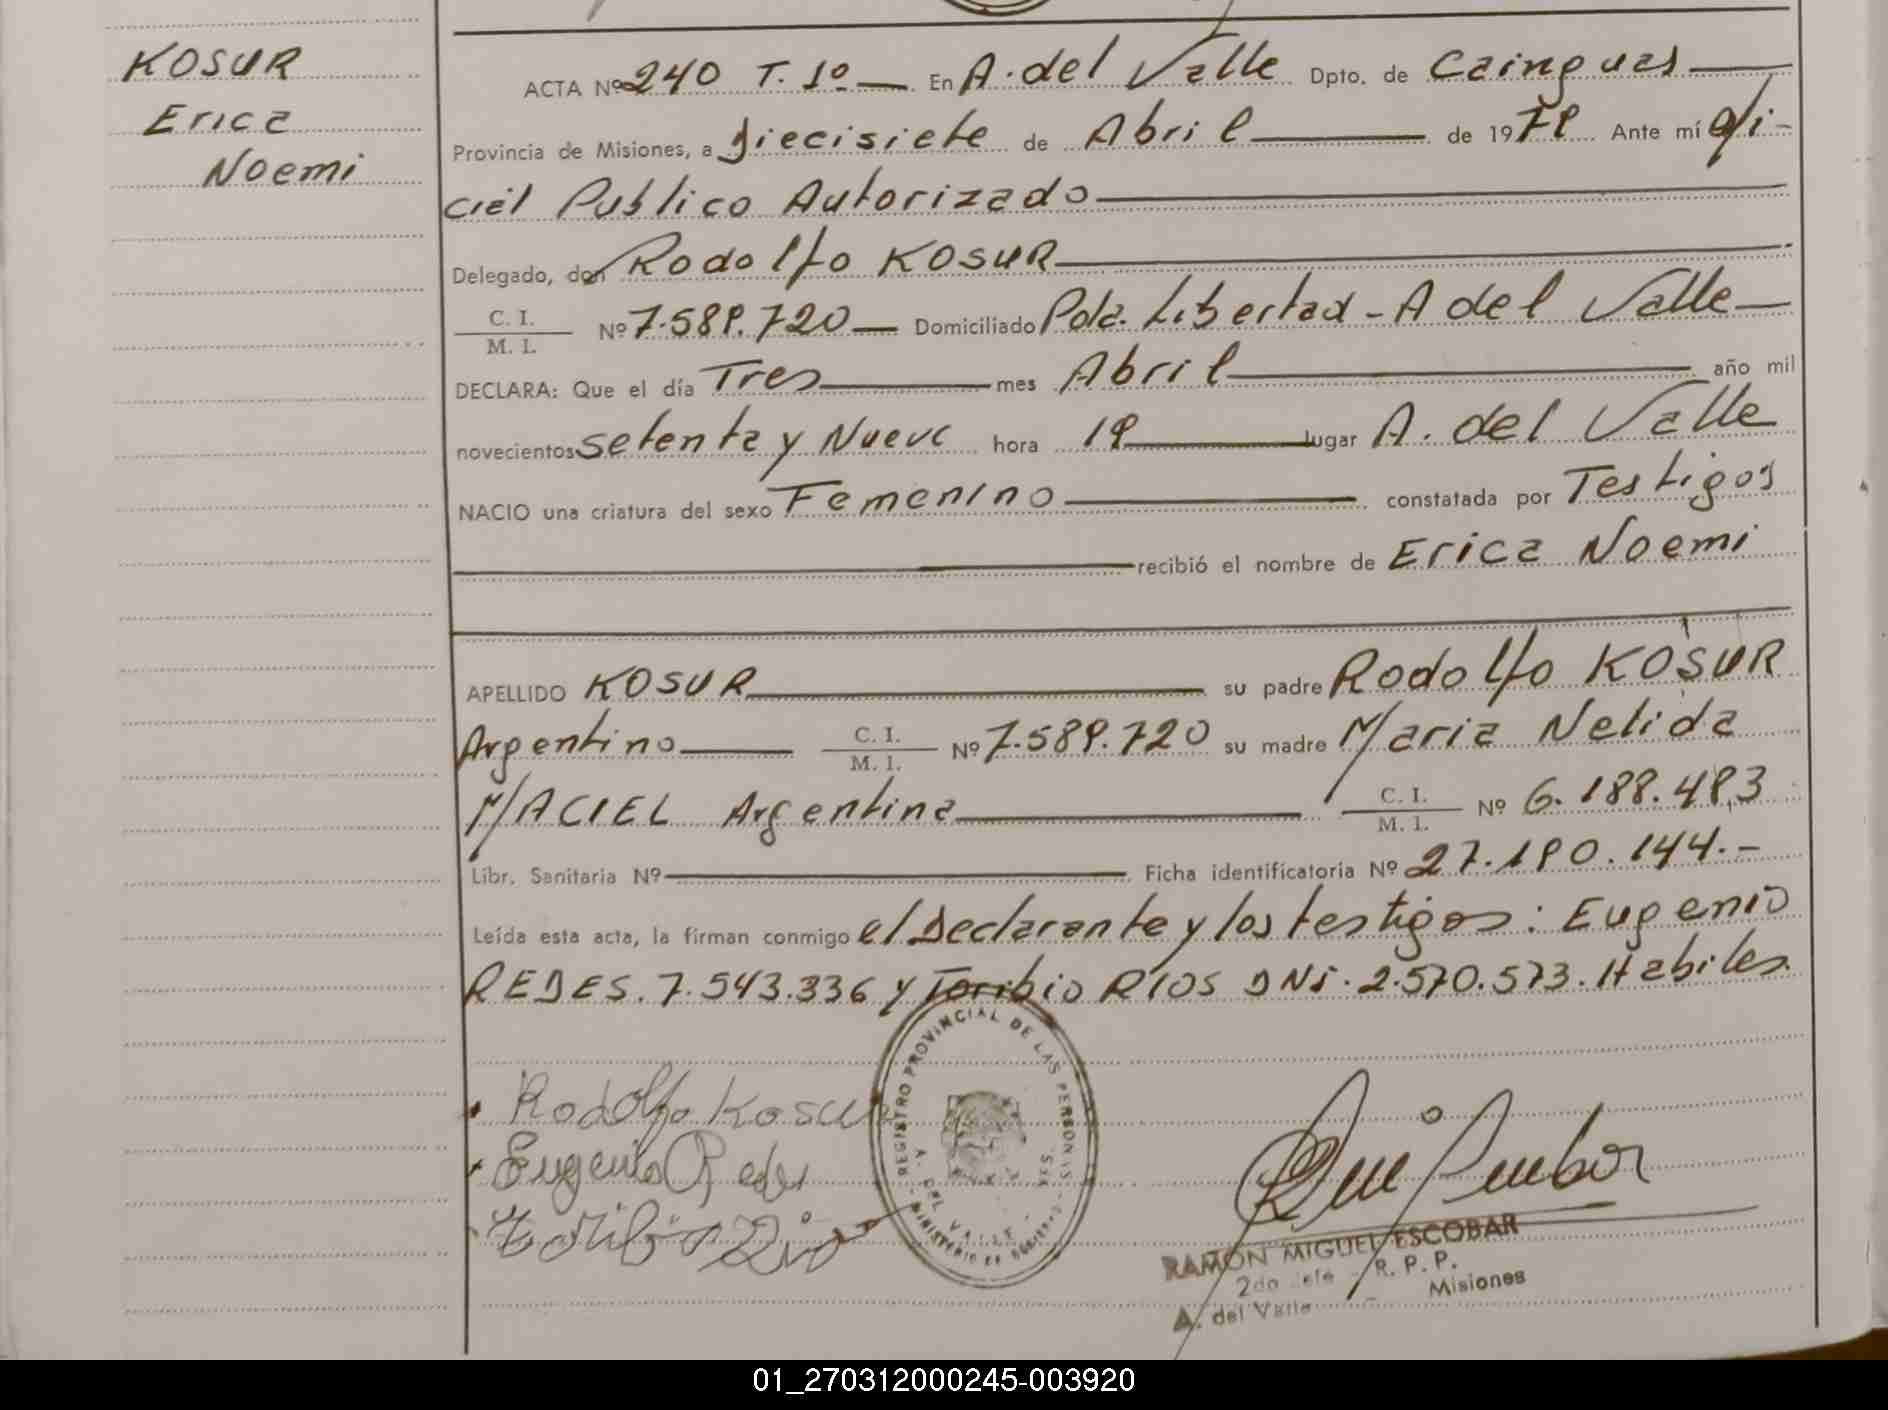 KOSUR
Erica
Noemi
ACTA Nº 240 T. 1º — En A. del Valle Dpto. de Cainguas
Provincia de Misiones, a Diecisiete de Abril de 1979 Ante mí Ofi-
cial Publico Autorizado
Delegado, don Rodolfo KOSUR
C. I.
M. I. Nº 7.589.720 — Domiciliado Pda. Libertad - A del Valle
DECLARA: Que el día Tres mes Abril año mil
novecientos setenta y Nueve hora 19 lugar A. del Valle
NACIO una criatura del sexo Femenino constatada por Testigos
recibió el nombre de Erica Noemi
APELLIDO KOSUR su padre Rodolfo KOSUR
Argentino C. I. M. I. Nº 7.589.720 su madre Maria Nelida
MACIEL Argentina C. I. M. I. Nº 6.188.493
Libr. Sanitaria Nº Ficha identificatoria Nº 27.190.144.-
Leída esta acta, la firman conmigo el Declarante y los testigos: Eugenio
REDES. 7.543.336 y Toribio RIOS DNI. 2.570.573. Habiles.
REGISTRO PROVINCIAL DE LAS PERSONAS
A. DEL VALLE - MNES.
MINISTERIO DE GOBIERNO
Rodolfo Kosur
Eugenio Redes
Toribio Rios
RAMON MIGUEL ESCOBAR
2do Jefe R. P. P.
A. del Valle - Misiones
01_270312000245-003920